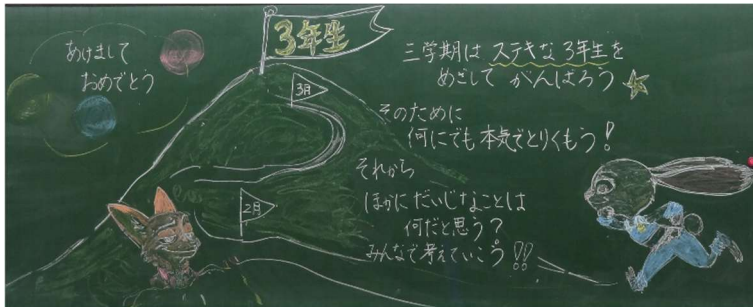 あけまして
おめでとう
3年生
3月
2月
三学期は ステキな 3年生を
めざして がんばろう
そのために
何にでも 本気でとりくもう！
それから
ほかに だいじなことは
何だと思う？
みんなで考えていこう!!